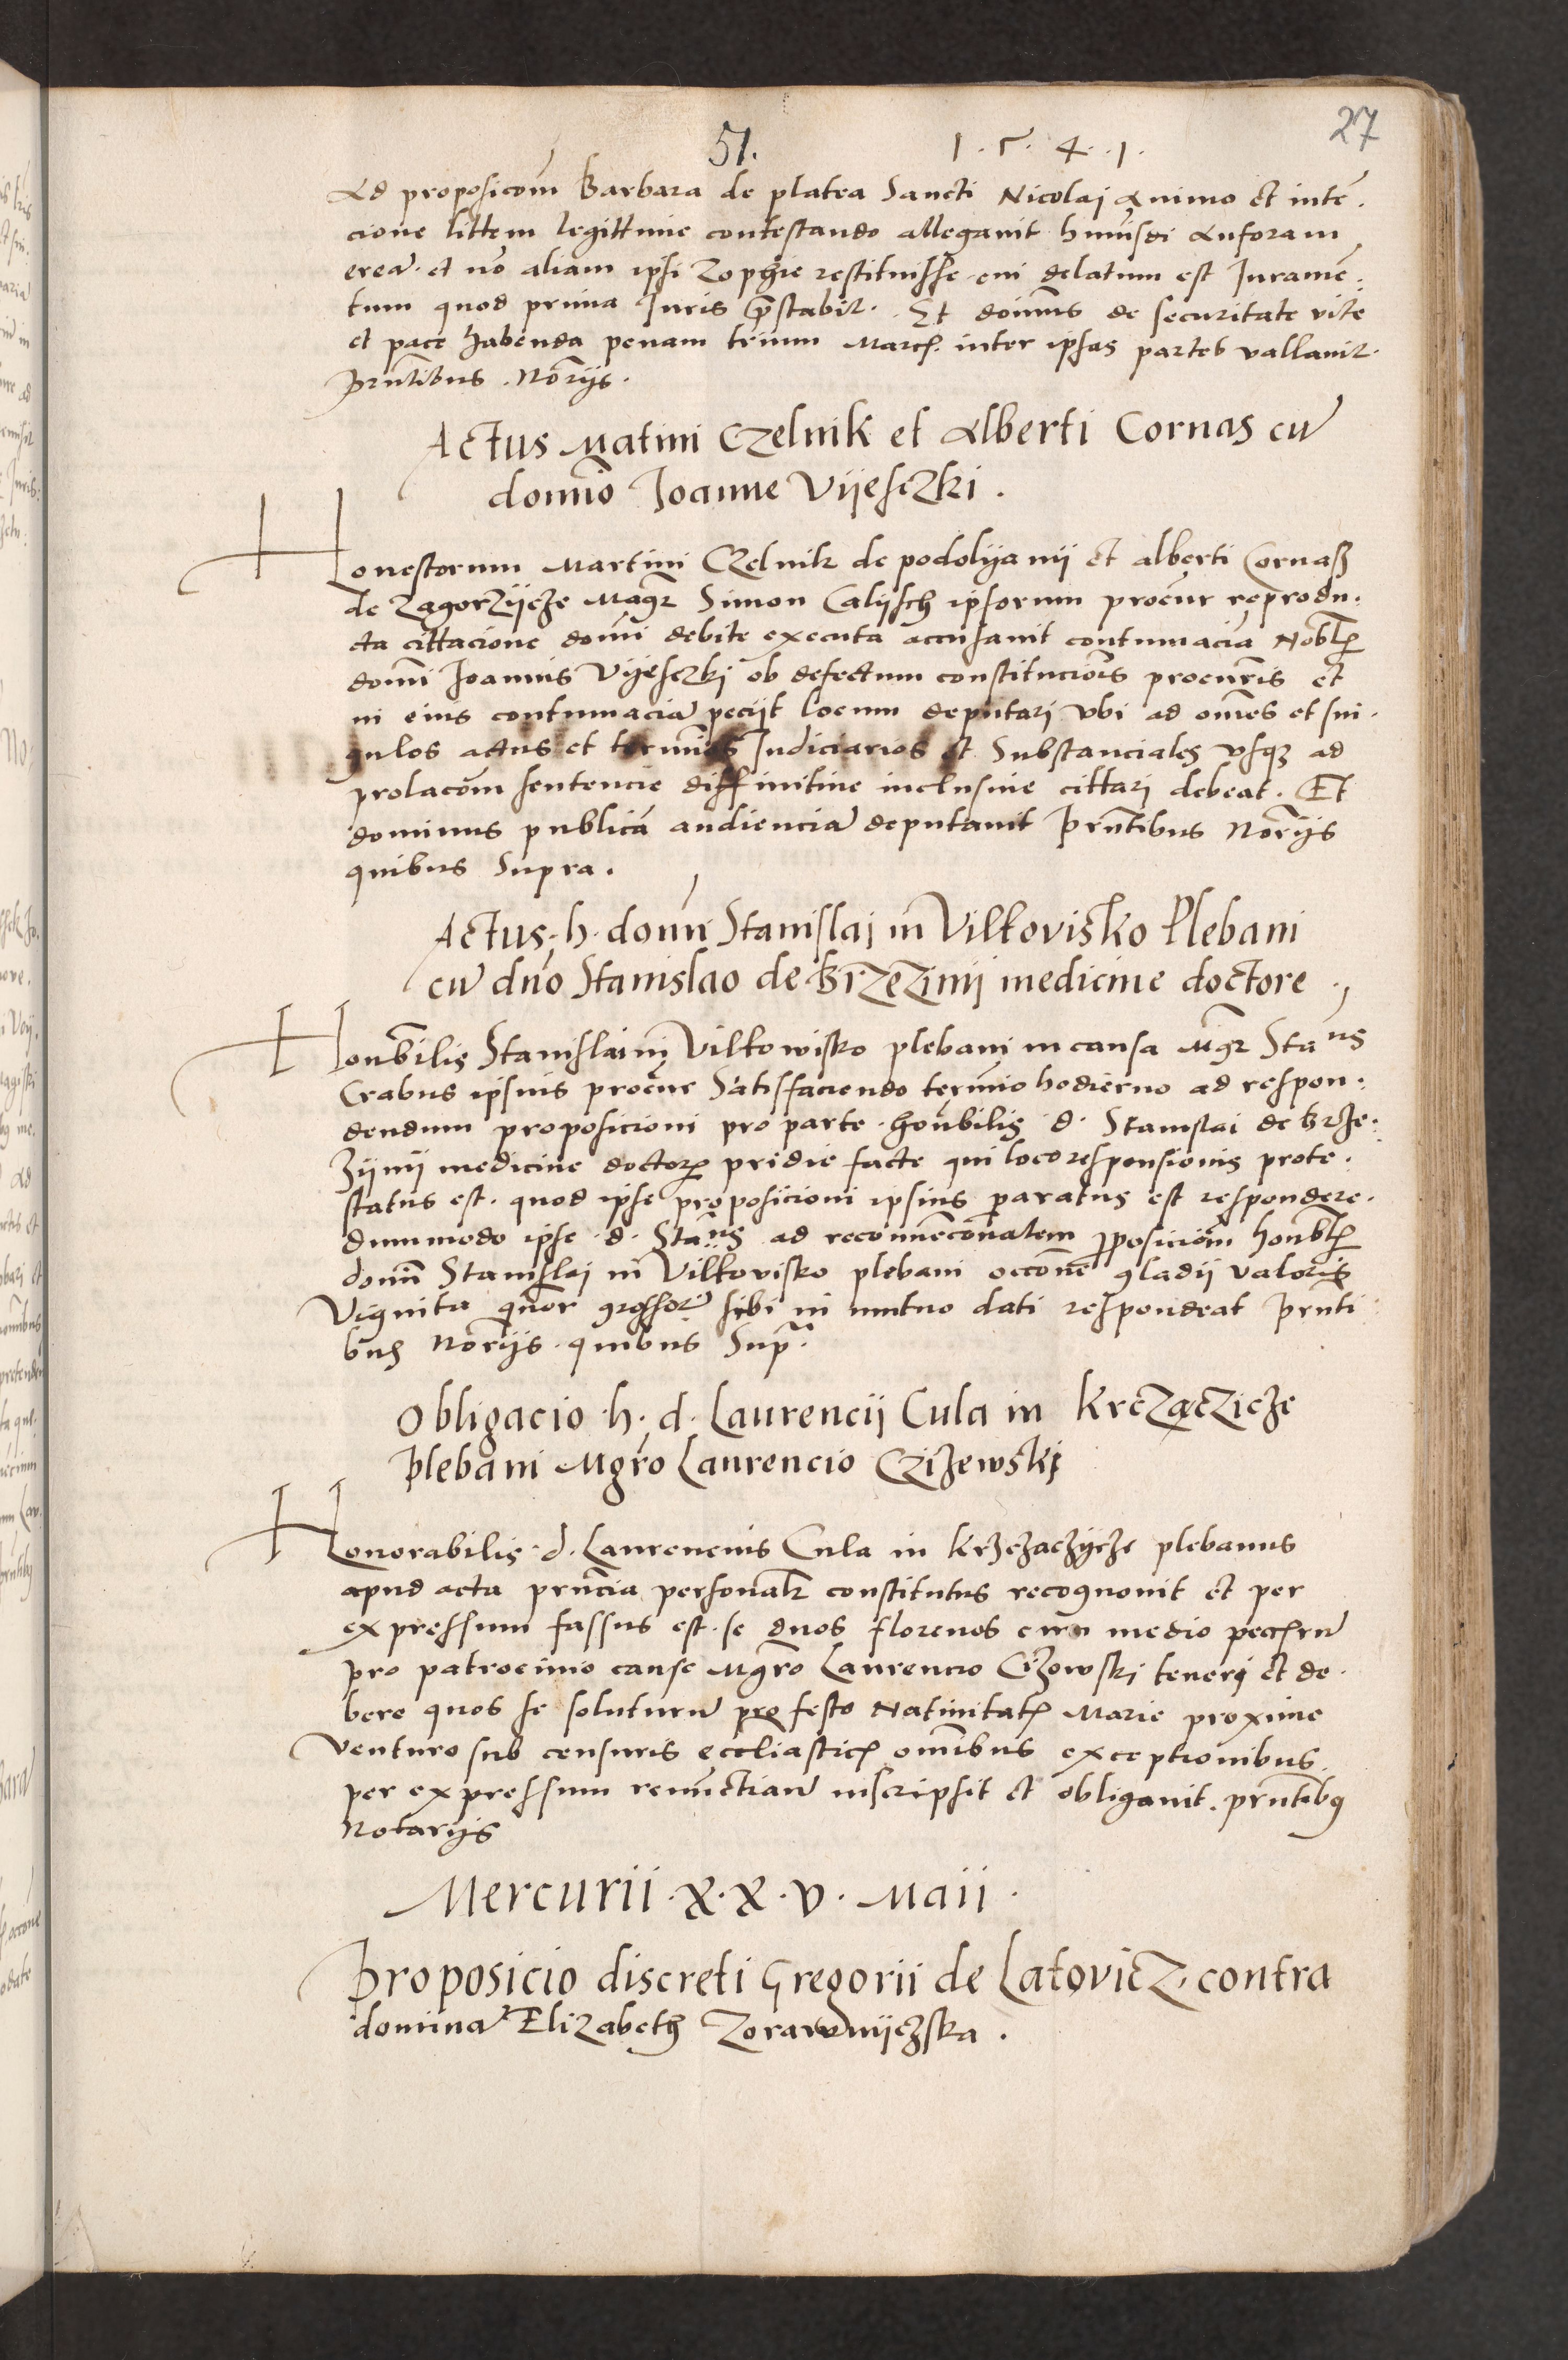 27
51. 1.5.4.1.
Ad proposicōm Barbara de platea Sancti Nicolai animo et inten̄.
cione littem legittime contestando allegavit huiusdi Anforam
eream̄ et nō aliam ipsi Zophie restituisse cui delatum est Iuramē:
tum quod prima Iuris p̄stabit. Et doimus de securitate vite
et pace habenda penam trium March. inter ipsas partes vallavit.
Prn̄tibus Norijs.
Actus Matini Czelnik et Alberti Cornas cū
domīo Joanne Vijesczki.
Honestorum Martini Czelnik de podolijanij et alberti Cornaß
de Zagorzijcze Magr Simon Calijsch ipsorum procūr reprodu:
cta cittacione domī debite executa accusavit contumaciā Nobl
domī Joannis Vijesczki ob defectum constitucioīs procuris et
in eius contumaciā peciit locum deputari vbi ad omēs et sin:
gulos actus et termīos Iudiciarios et Substanciales vsqz ad
prolacōm sentencie diffinitive inclusive cittari debeat. Et
dominus publicā audienciā deputavit Prn̄tibus Norijs
quibus Supra.
Actus h. domī Stanislai in Vilkovisko Plebani
cū dn̄o Stanislao de Brzezinij medicine doctore.
Honbilis Stanislai in Vilkowisko plebani in causa Mgr Staus
Crabus ipsius procūr Satisfaciendo termīo hodierno ad respon:
dendum proposicioni pro parte honbilis d. Stanislai de Brze:
zijnij medicine doctor pridie facte qui loco responsionis prote:
status est. quod ipse proposicioni ipsius paratus est respondere.
dummodo ipse d. Staus ad reconuenconalem proposiciōm honbl
domī Stanislai in Vilkovisko plebani occōne gladij valoris
Viginta qiuor grossor sibi in mutuo dati respondeat Prn̄ti
bus Norijs quibus Supr.
Obligacio h. d. Laurencii Cula in Krczączicze
Plebani Mgro Laurencio Cziżewski
Honorabilis d. Laurencius Cula in Krzczaczijcze plebanus
apud acta prn̄cia personalr constitutus recognovit et per
expressum fassus est se duos florenos cum medio pecctru
pro patrocinio cause Mgro Laurencio Czizowski teneri et de:
bere quos se soluturū pro festo Natiuitat Marie proxime
Venturo sub censuris eccliastic omībus exceptionibus
per expressum renūctian inscripsit et obligavit. prn̄tibus
Notarijs
Mercurii x.x.v. Maii.
Proposicio discreti Gregorii de Latovicz contra
dominā Elizabeth Zorawnijczska.